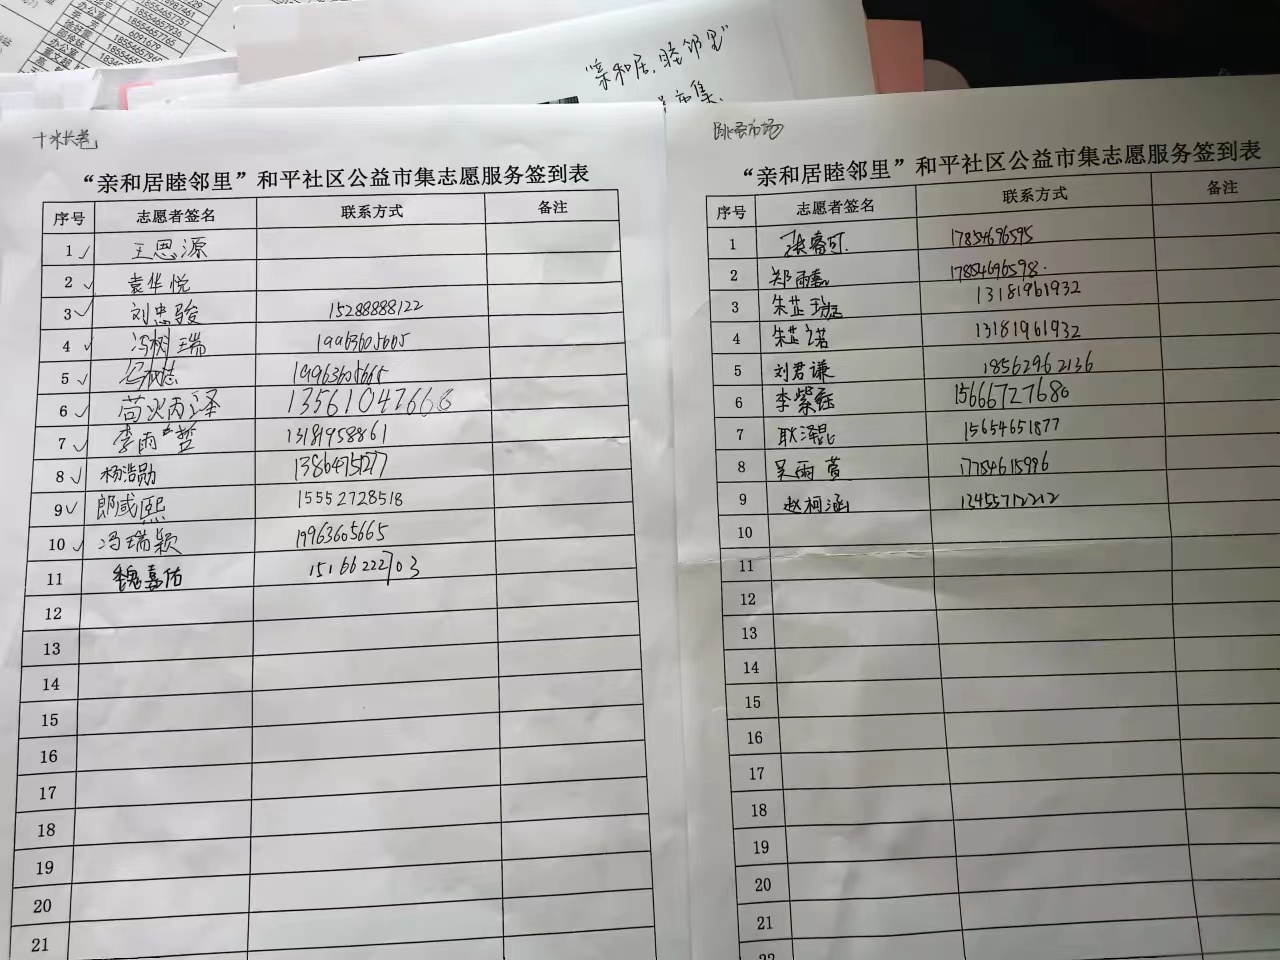 18554657757
18554657936
18554657765
办公室 6091679
“亲和居.睦邻里”
市集
十米长卷
“亲和居睦邻里”和平社区公益市集志愿服务签到表
序号 志愿者签名 联系方式 备注
1 ✓ 王思源
2 ✓ 袁华悦
3 ✓ 刘忠骏 15288888122
4 ✓ 冯树瑞 19963605665
5 ✓ 19963605665
6 ✓ 苟火丙泽 13561047668
7 ✓ 李雨哲 13181958861
8 ✓ 杨浩勋 13864751277
9 ✓ 郎咸熙 15552728518
10 ✓ 冯瑞颖 19963605665
11 魏嘉佑 15166222703
12
13
14
15
16
17
18
19
20
21
跳蚤市场
“亲和居睦邻里”和平社区公益市集志愿服务签到表
序号 志愿者签名 联系方式 备注
1 张睿可. 17854696595
2 郑雨嘉 17854696598.
3 朱芷璇 13181961932
4 朱芷诺 13181961932
5 刘君谦 18562962136
6 李紫 15666727680
7 耿泽昆 15654651877
8 吴雨萱 17754615996
9 赵柯涵 13455712212
10
11
12
13
14
15
16
17
18
19
20
21
22